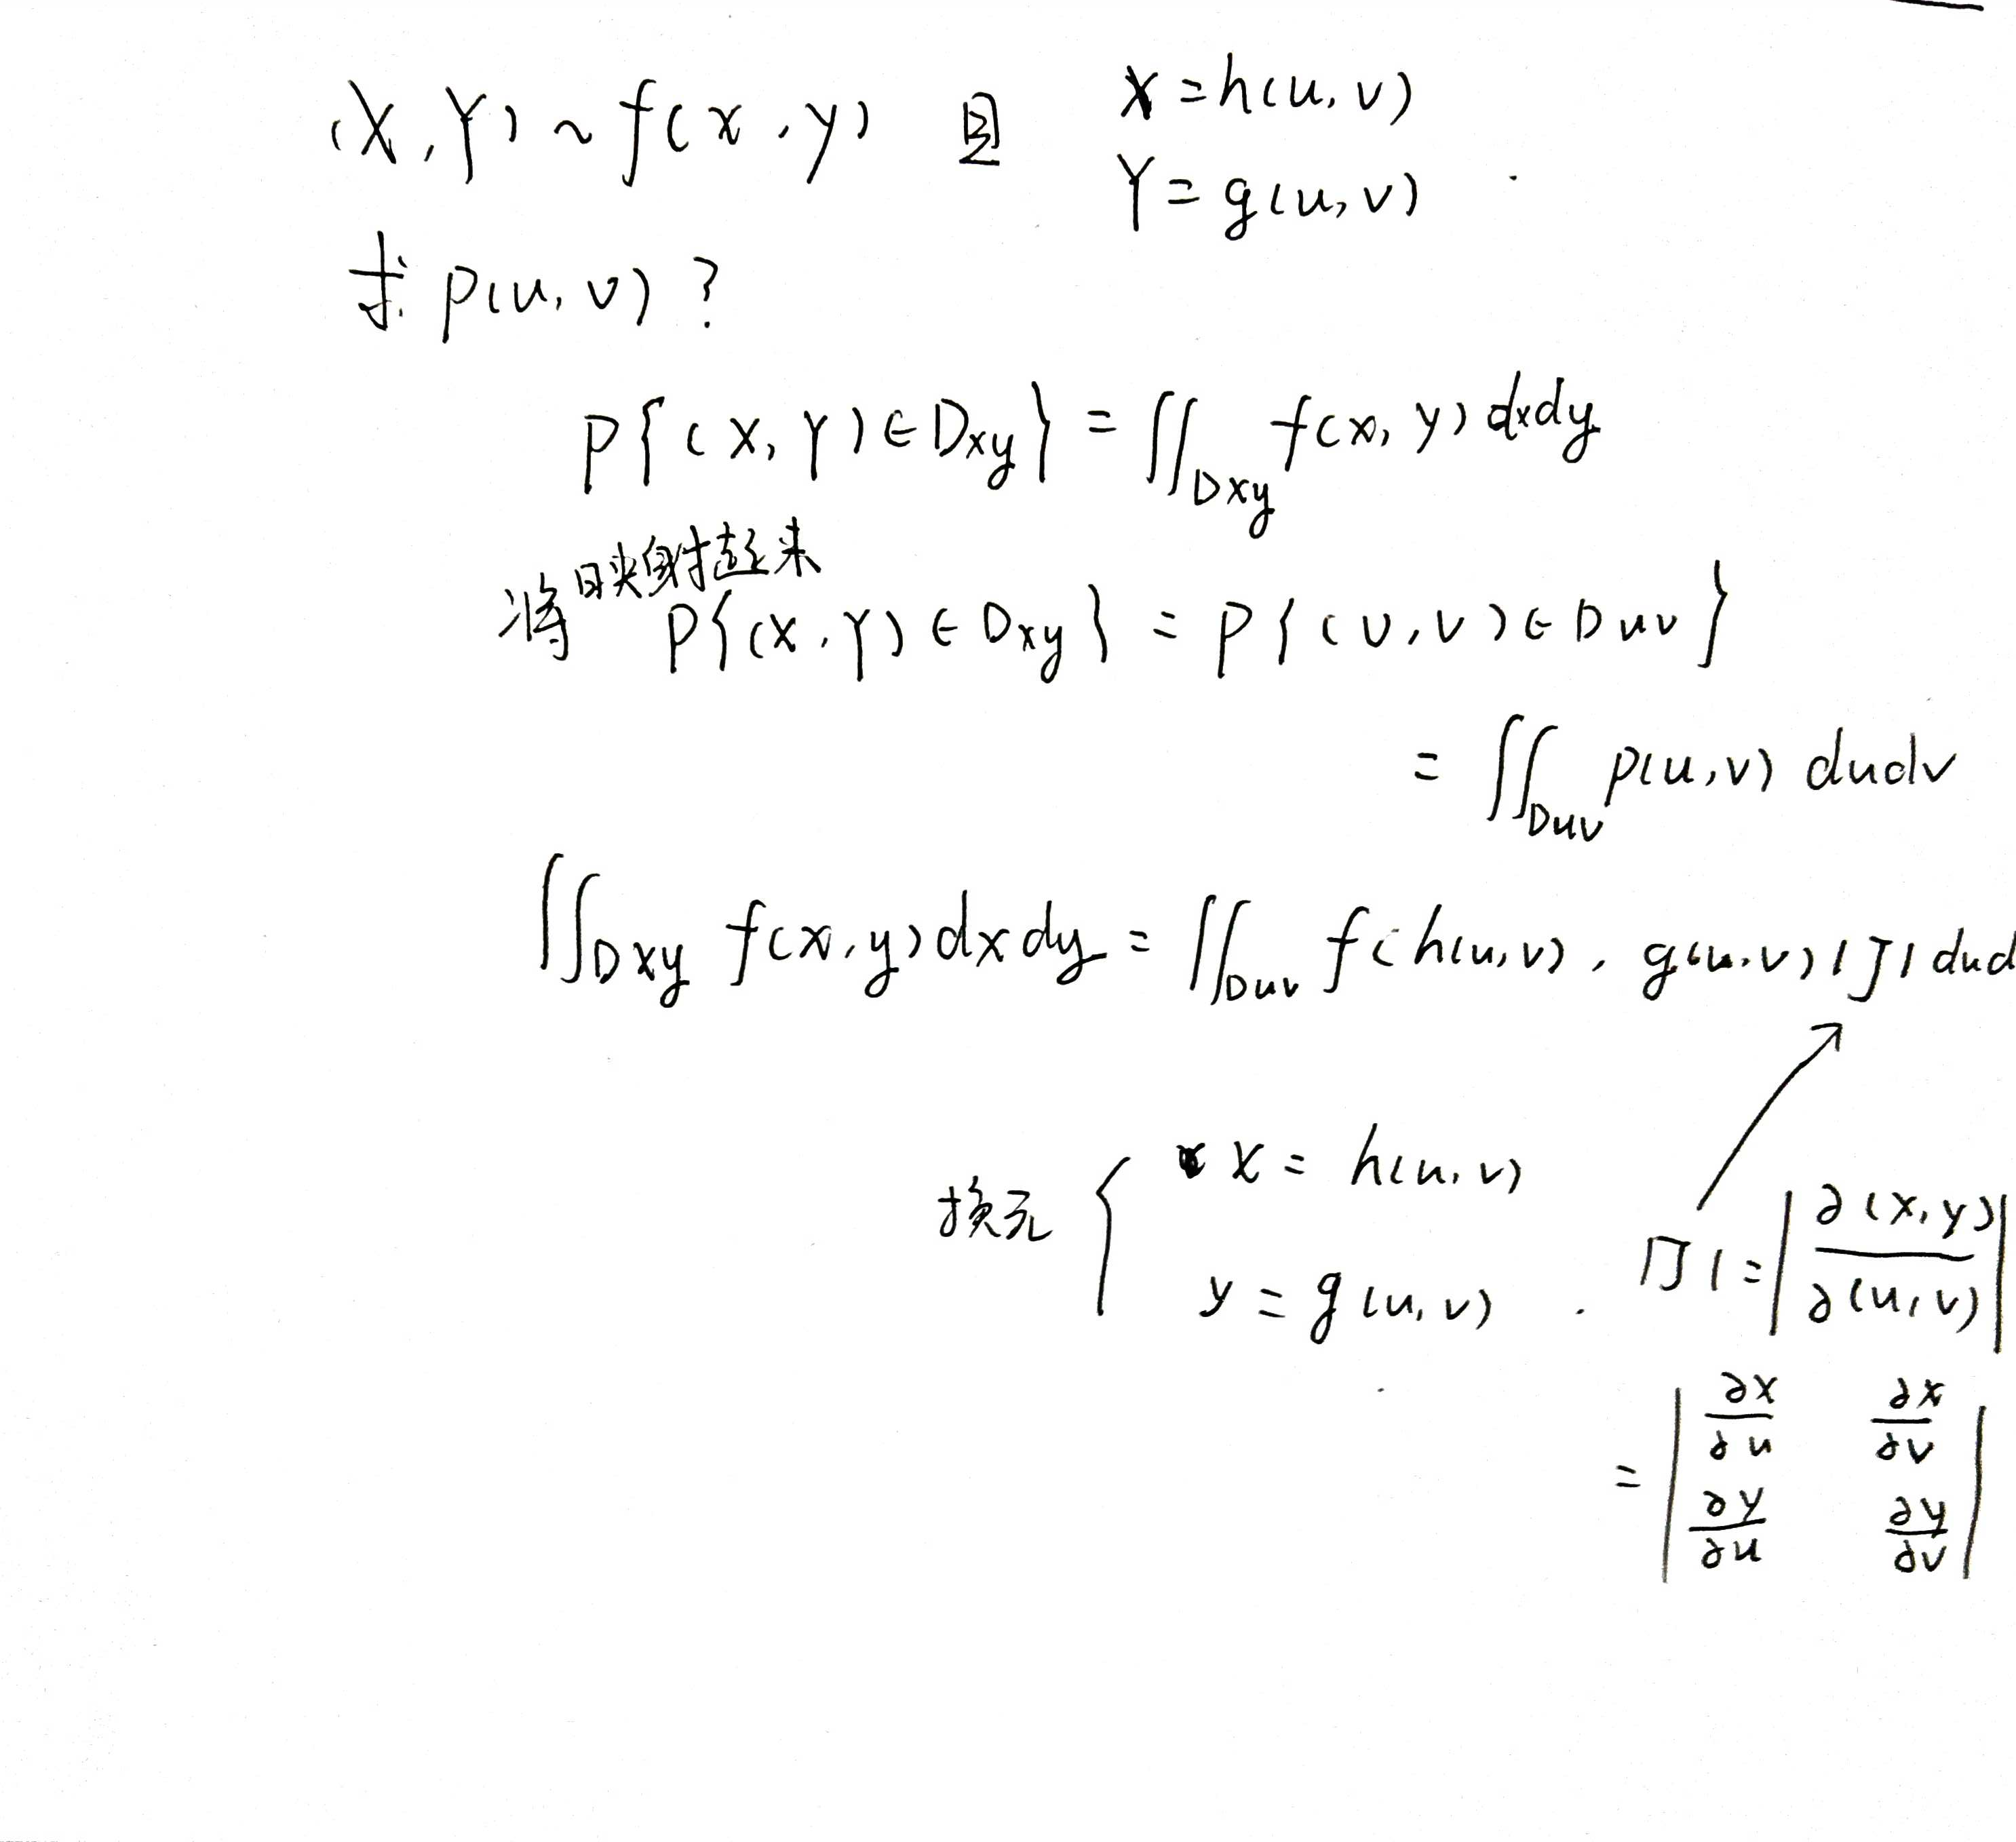 (X,Y) ~ f(x,y) 且 X=h(u,v)
Y=g(u,v)
求 p(u,v)?
P{(X,Y)∈Dxy} = ∬Dxy f(x,y) dxdy
将映射捡起来
P{(X,Y)∈Dxy} = P{(U,V)∈Duv}
= ∬Duv p(u,v) dudv
∬Dxy f(x,y)dxdy = ∬Duv f(h(u,v), g(u,v) |J| dud
换元 { x = h(u,v)
y = g(u,v) . |J| = |∂(x,y)/∂(u,v)|
= | ∂x/∂u ∂x/∂v |
| ∂y/∂u ∂y/∂v |